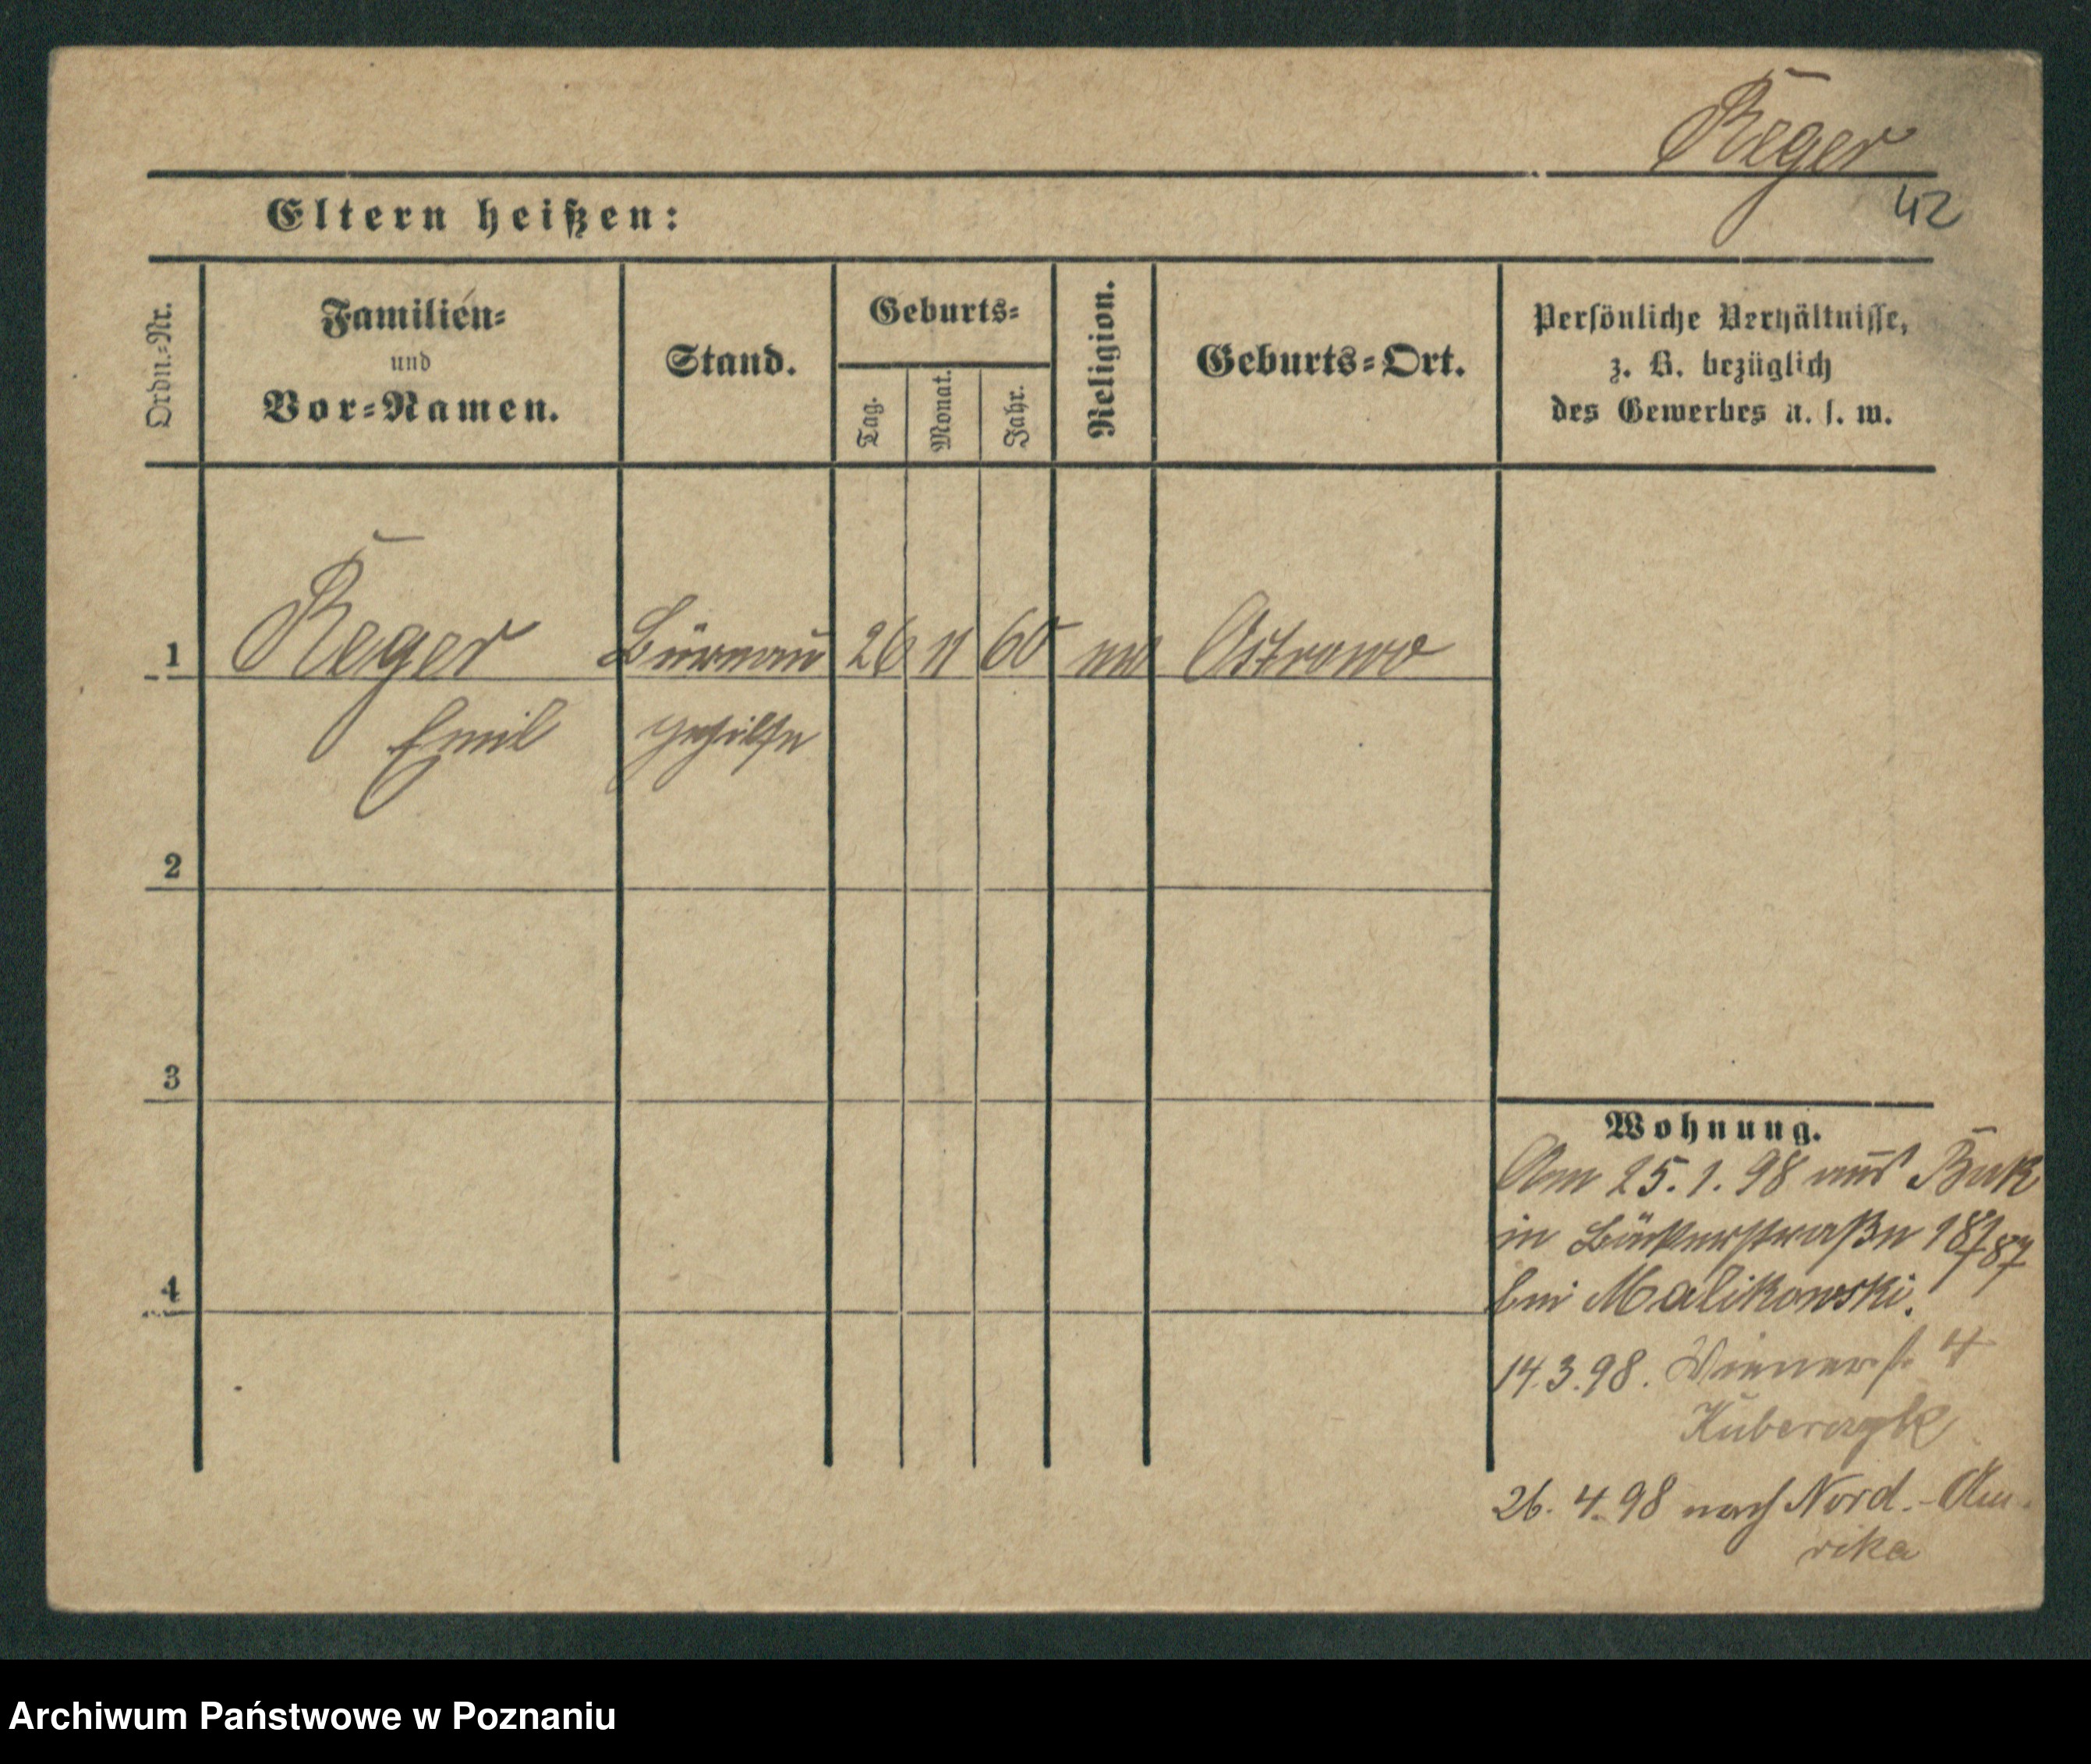 Reger
42
Eltern heißen:
Ordn.-Nr.
Familien-
und
Vor-Namen.
Stand.
Geburts-
Tag.
Monat.
Jahr.
Religion.
Geburts-Ort.
Persönliche Verhältnisse,
z. B. bezüglich
des Gewerbes u. s. w.
1 Reger Büreau 26 11 60 Ostrowo
Emil gehilfe
2
3
4
Wohnung.
Am 25.1.98 aus Buk
in Bäckerstraße
bei Malikowski.
14.3.98. Wienerst. 4
26.4.98 nach Nord.-Am.
rika
Archiwum Państwowe w Poznaniu